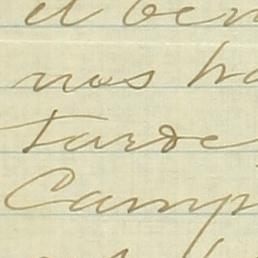 el ben
nos ha
tarde
Camp